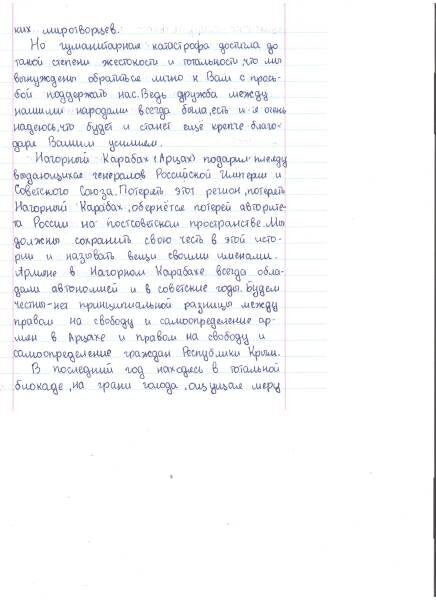 ких миротворцев.
Но гуманитарная катастрофа достигла до
такой степени жестокости и тотальности, что мы
вынуждены обратиться лично к Вам с прось-
бой поддержать нас. Ведь дружба между
нашими народами всегда была, есть и я очень
надеюсь, что будет и станет ещё крепче благо-
даря Вашим усилиям.
Нагорный Карабах (Арцах) подарил плеяду
выдающихся генералов Российской Империи и
Советского Союза. Потерять этот регион, потерять
Нагорный Карабах, обернётся потерей авторите-
та России на постсоветском пространстве. Мы
должны сохранить свою честь в этой исто-
рии и называть вещи своими именами.
Армяне в Нагорном Карабахе всегда обла-
дали автономией и в советские годы. Будем
честны-нет принципиальной разницы между
правом на свободу и самоопределение ар-
мян в Арцахе и правом на свободу и
самоопределение граждан Республики Крым.
В последний год находясь в тотальной
блокаде, на грани голода, ощущая меру